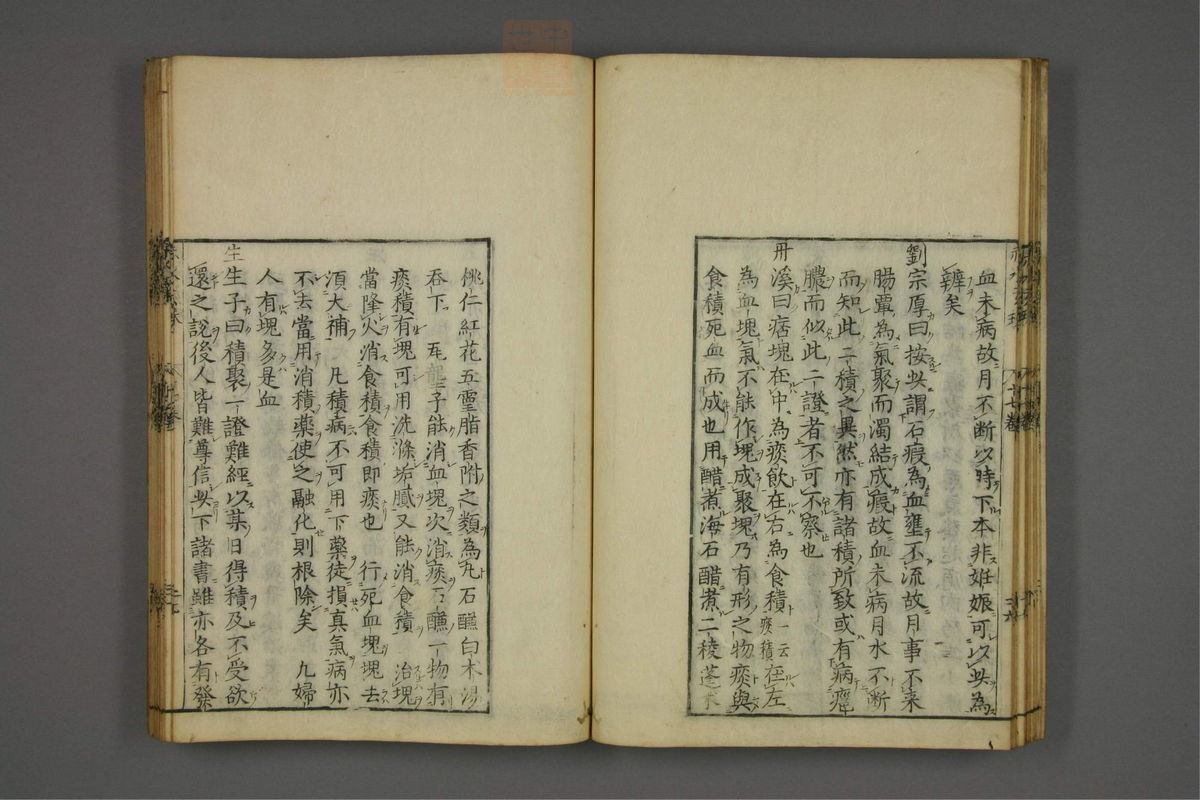 血未病故月不断以時下本非妊娠可以此為
辨矣
劉宗厚曰按此謂石瘕為血壅不流故月事不来
腸覃為氣聚而濁結成瘕故血未病月水不断
而知此二積之異然亦有諸積所致或有病癰
膿而似此二證者不可不察也
丹溪曰痞塊在中為痰飲在右為食積一云痰積在左
為血塊氣不能作塊成聚塊乃有形之物痰與
食積死血而成也用醋煮海石醋煮三稜蓬朮
桃仁紅花五靈脂香附之類為丸石醶白朮湯
吞下 瓦龍子能消血塊次消痰石醶一物有
痰積有塊可用洗滌垢膩又能消食積 治塊
當降火消食積食積即痰也 行死血塊塊去
須大補 凡積病不可用下藥徒損真氣病亦
不去當用消積藥使之融化則根除矣 凡婦
人有塊多是血
生生子曰積聚一證難經以某日得積及不受欲
還之說後人皆難尊信此下諸書雖亦各有發
十七卷